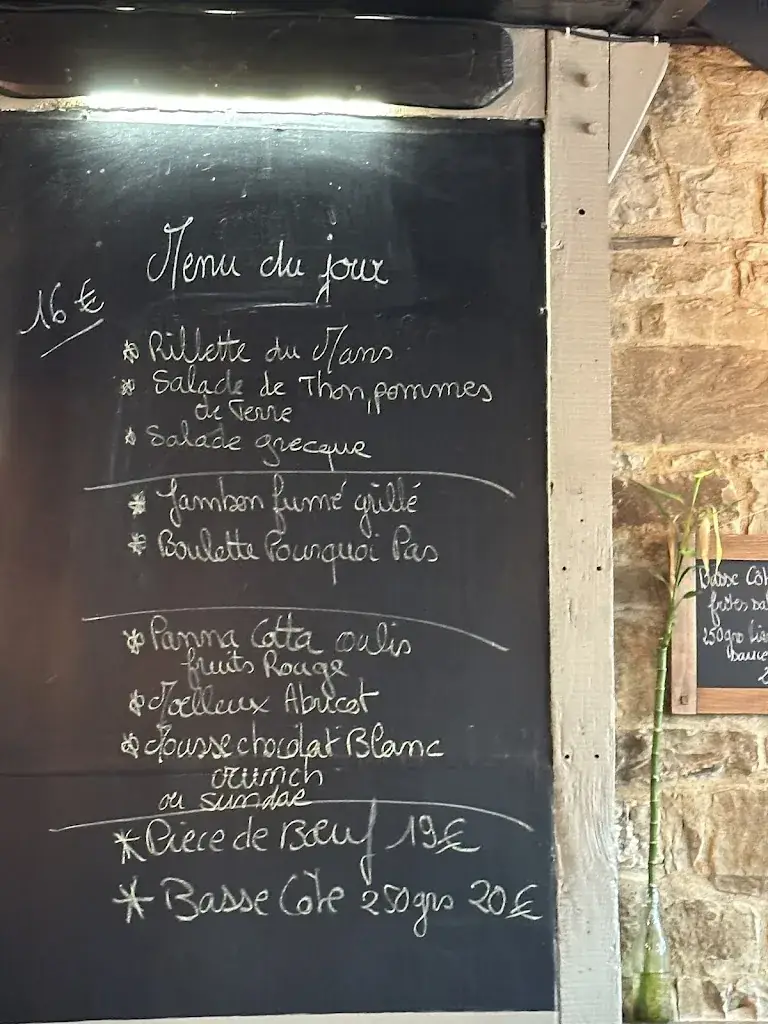 Menu du jour
16 €
* Rillette du Mans
* Salade de Thon, pommes
de Terre
* Salade grecque
* Jambon fumé grillé
* Boulette Pourquoi Pas
* Panna Cotta coulis
fruits Rouge
* Moelleux Abricot
* Mousse chocolat Blanc
crunch
ou sundae
* Pièce de Bœuf 19€
* Basse Côte 250grs 20€
Basse Cô
frites sal
250grs
sauce
2